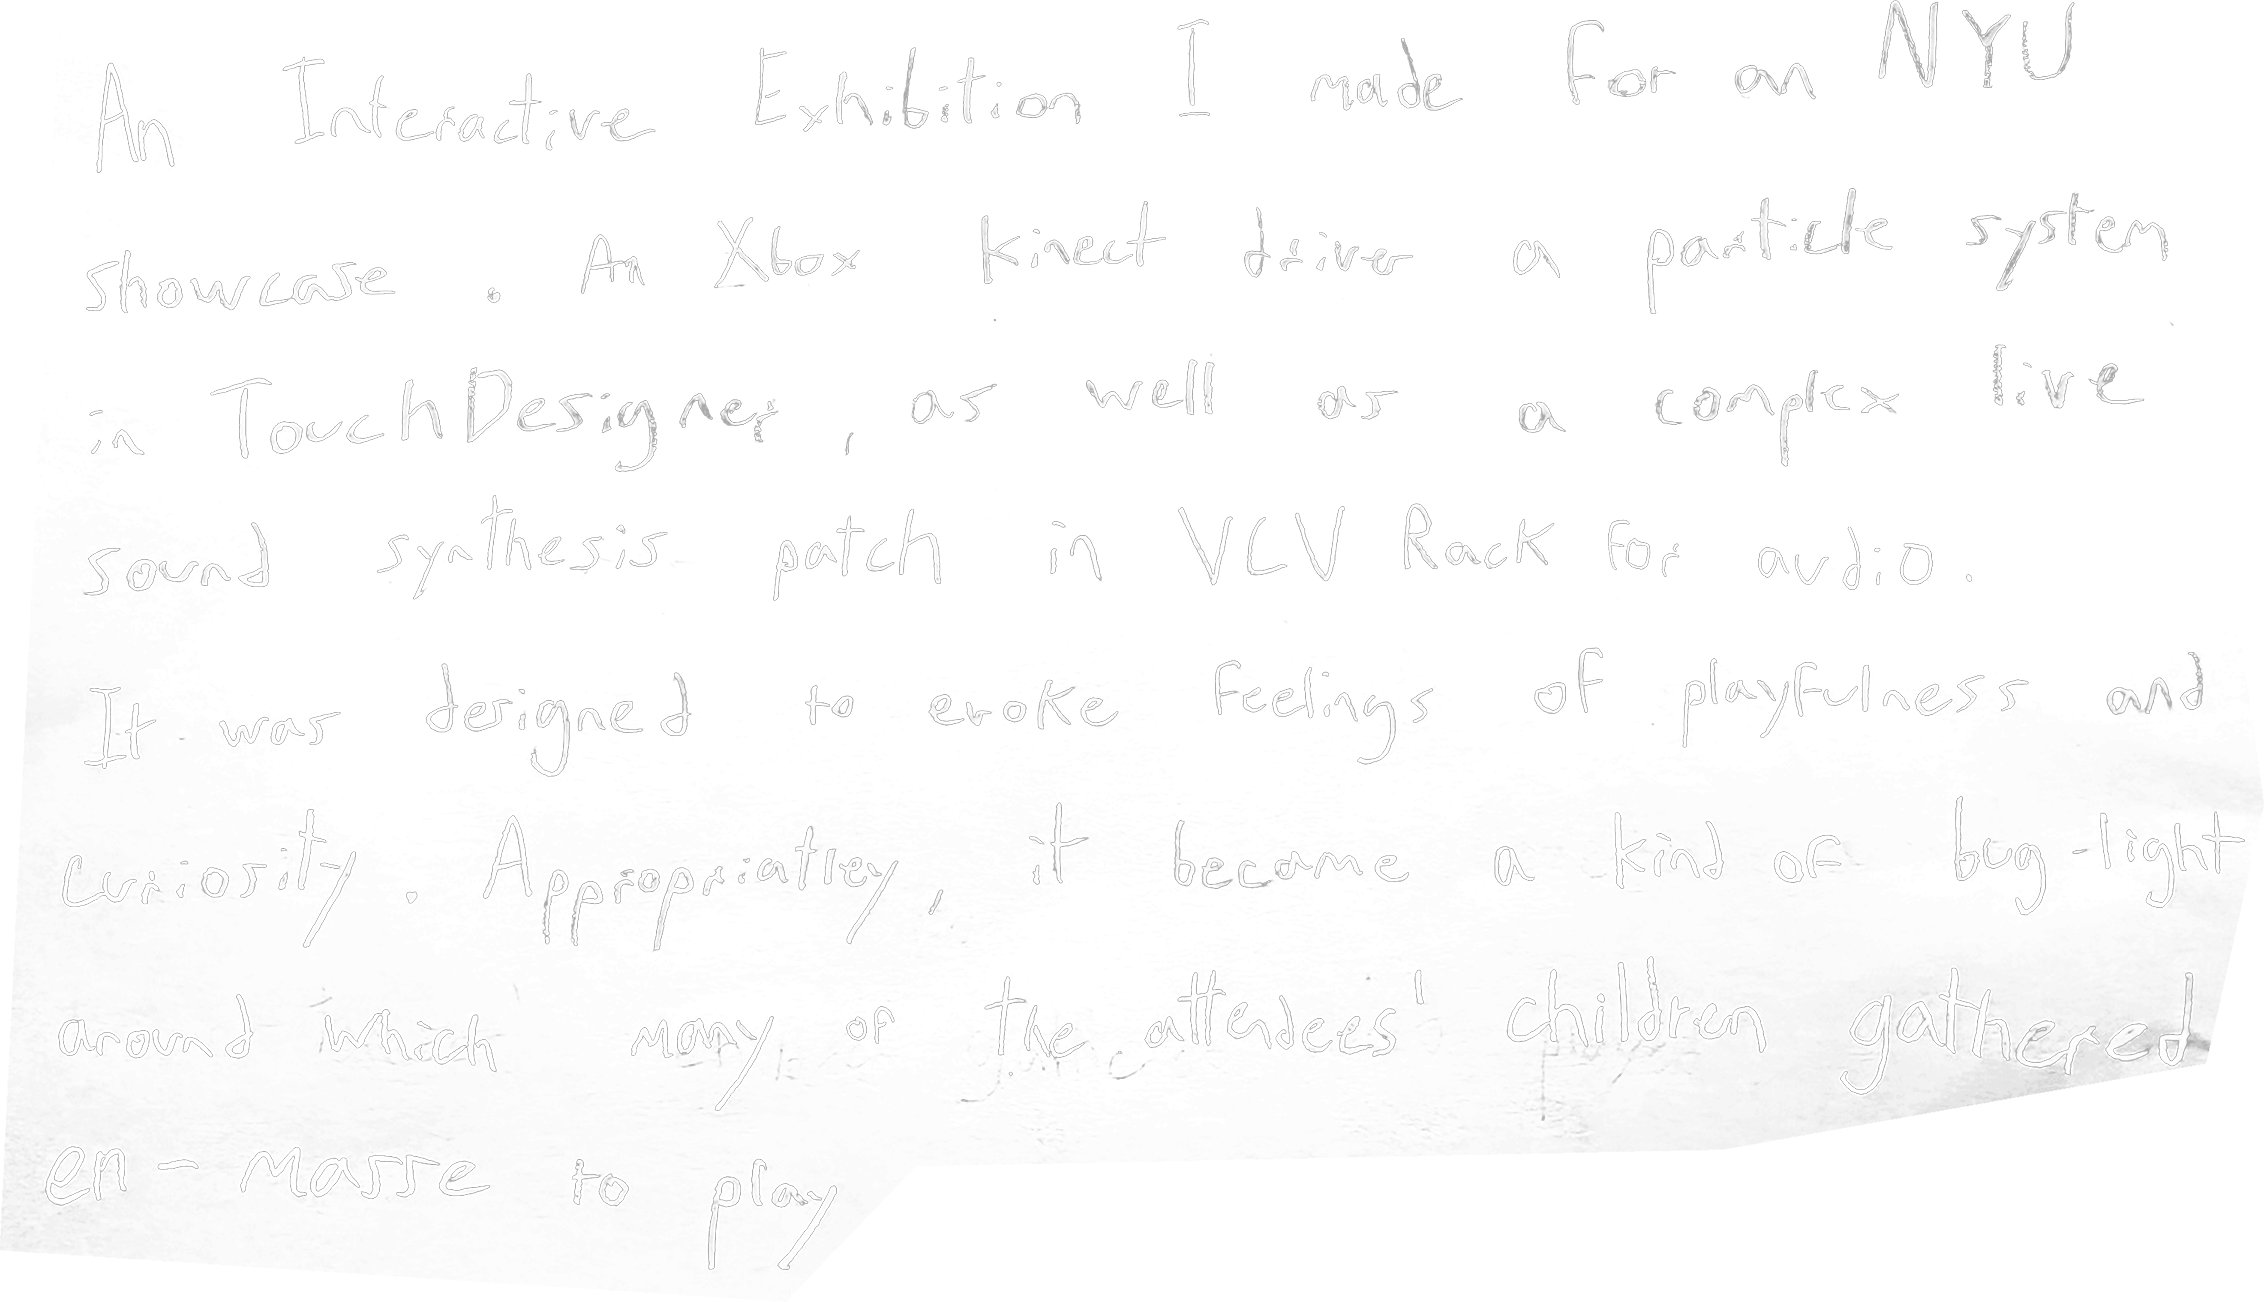 An Interactive Exhibition I made for an NYU
showcase. An Xbox Kinect driver a particle system
in TouchDesigner, as well as a complex live
sound synthesis patch in VCV Rack for audio.
It was designed to evoke feelings of playfulness and
curiosity. Appropriatley, it became a kind of bug-light
around which many of the attendees' children gathered
en-masse to play